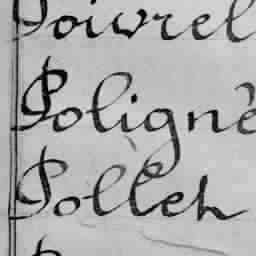 Poivrel
Poligné
Polleh